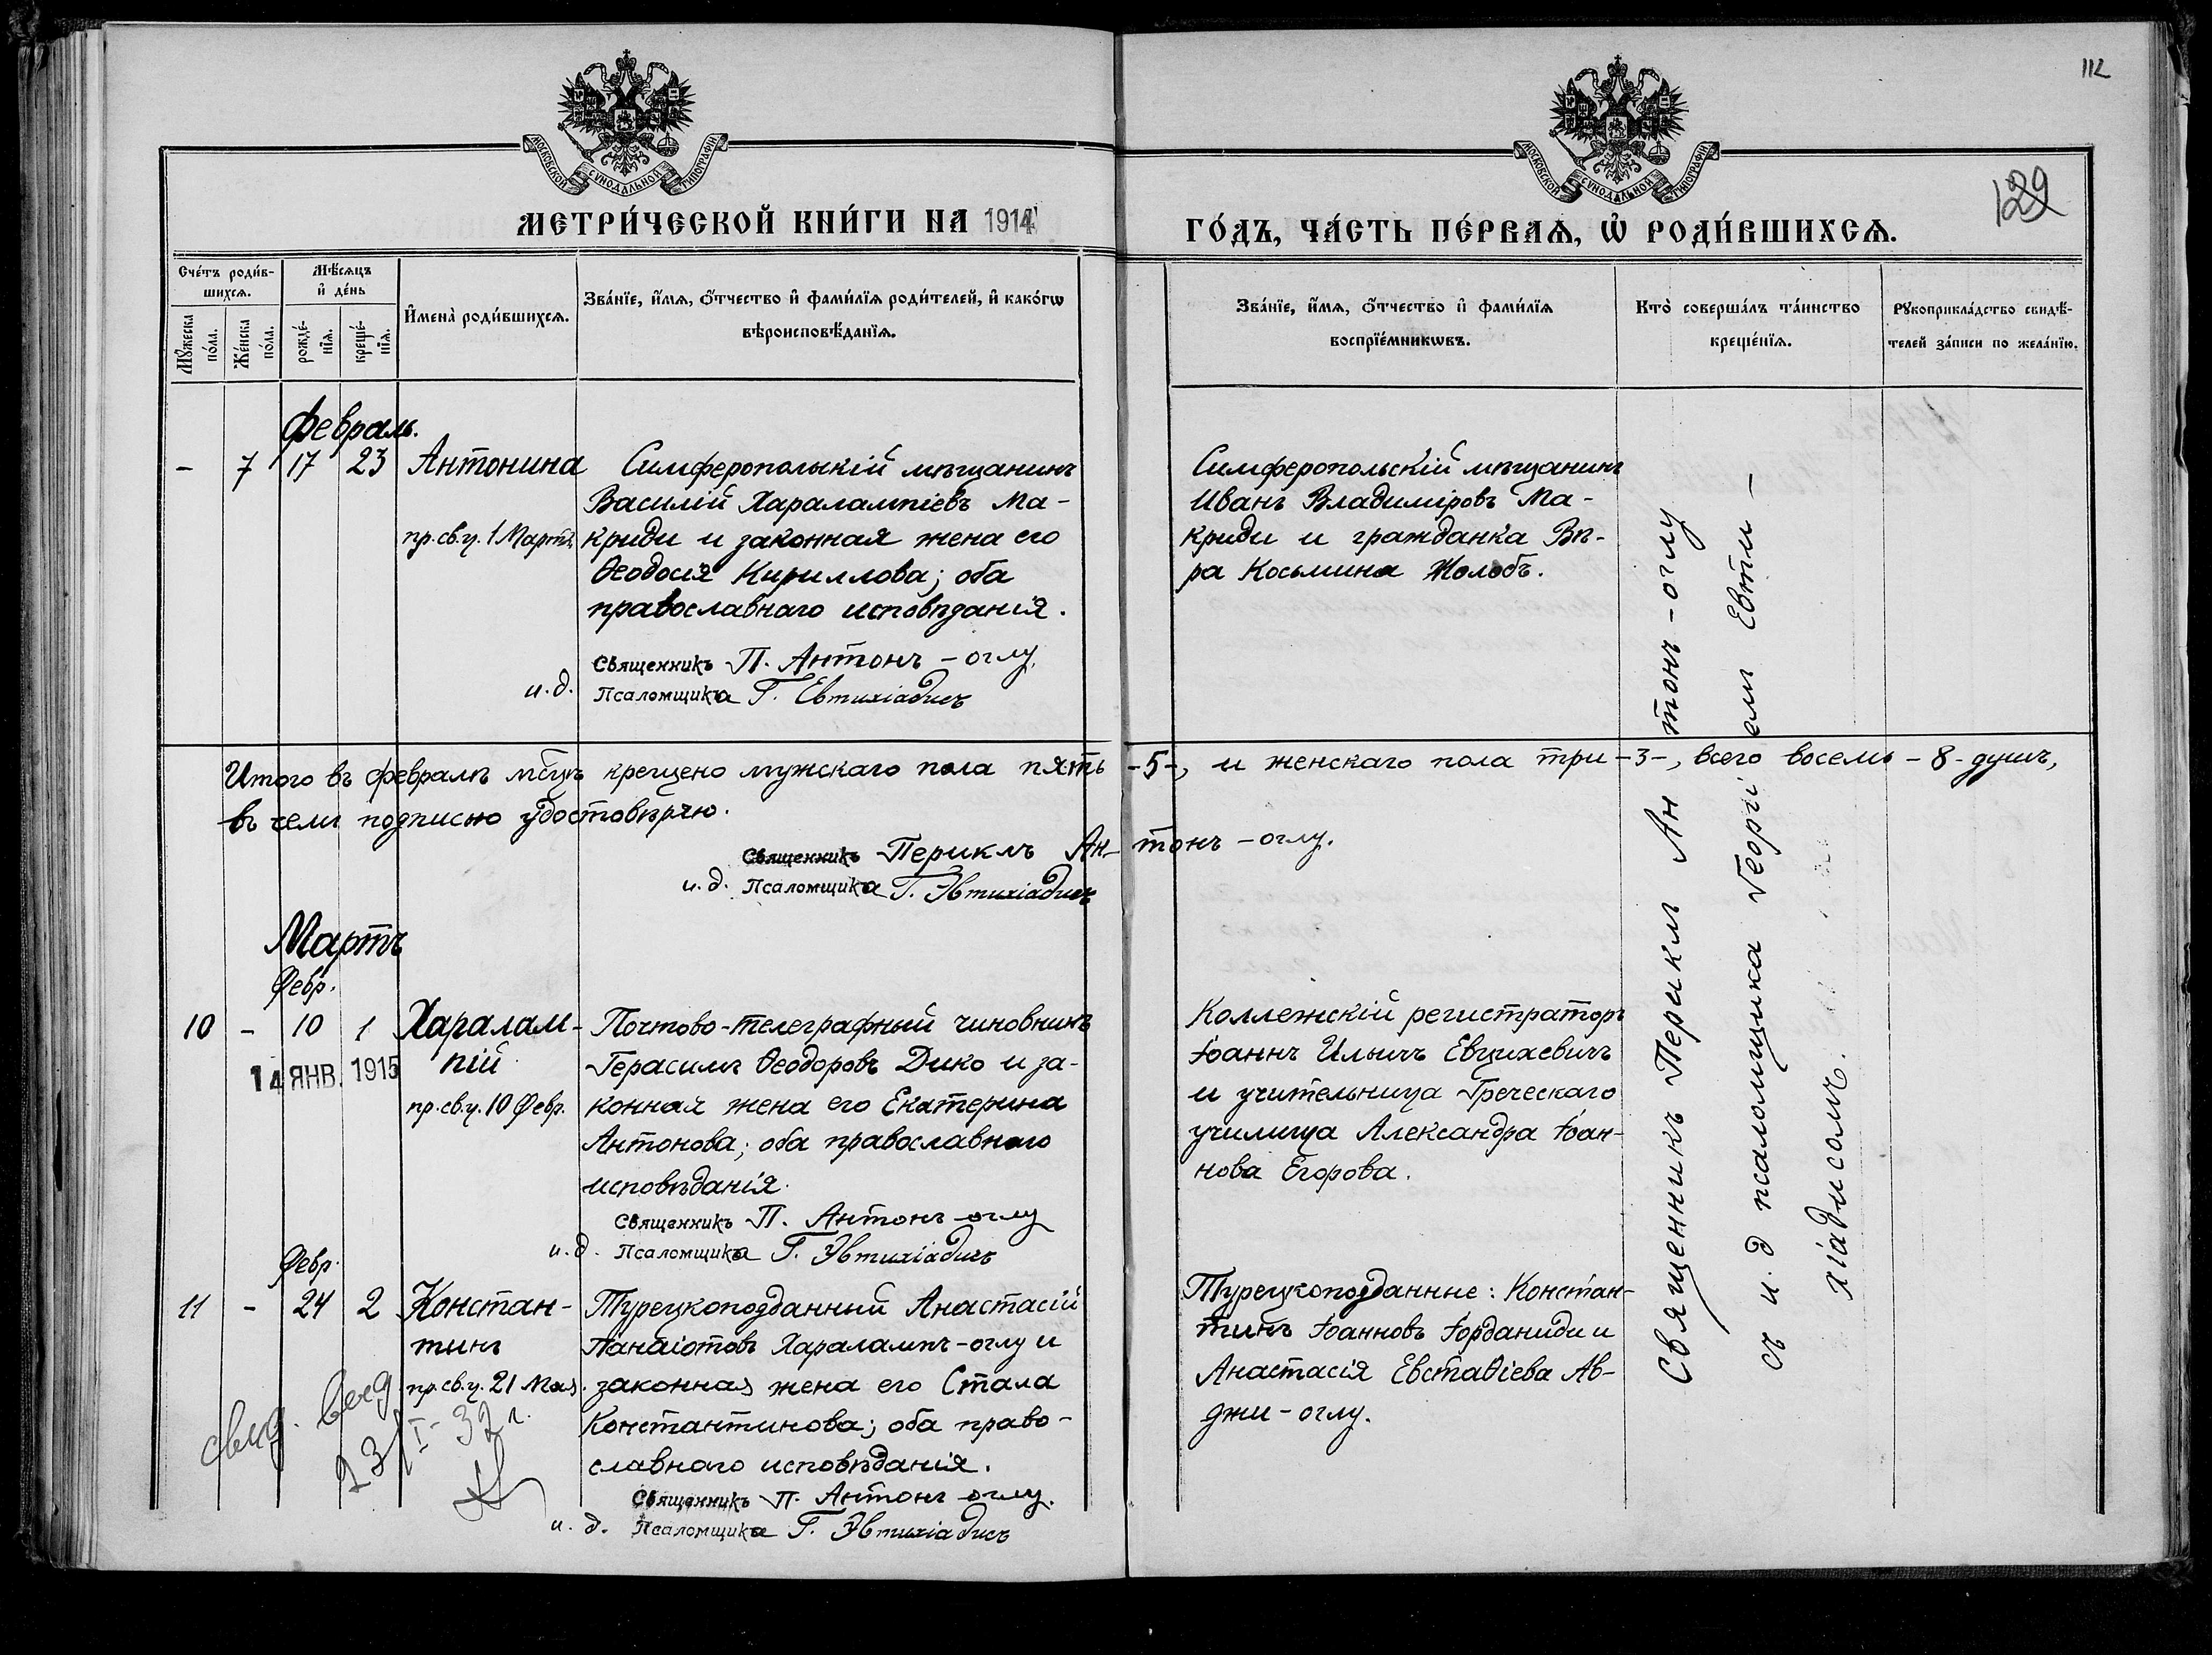 112
129
МОСКОВСКОЙ СУНОДАЛЬНОЙ ТИПОГРАФІИ
МОСКОВСКОЙ СУНОДАЛЬНОЙ ТИПОГРАФІИ
МЕТРИ́ЧЕСКОЙ КНИ́ГИ НА 1914
ГО́ДЪ, ЧА́СТЬ ПЕ́РВАѦ, Ѡ РОДИ́ВШИХСѦ.
Сче́тъ роди́в-
шихсѧ.
Мꙋ́жеска
по́ла.
Же́нска
по́ла.
Мѣ́сѧцъ
и҆ де́нь
рожде́-
нїѧ.
креще́-
нїѧ.
И҆мена̀ роди́вшихсѧ.
Зва́нїе, и҆́мѧ, ѻ҆́тчество и҆ фами́лїѧ роди́телей, и҆ како́гѡ
вѣроисповѣ́данїѧ.
Зва́нїе, и҆́мѧ, ѻ҆́тчество и҆ фами́лїѧ
воспрїе́мникѡвъ.
Кто̀ соверша́лъ та́инство
креще́нїѧ.
Рꙋкоприкла́дство свидѣ́-
телей за́писи по жела́нїю.
Февраль.
- 7 17 23 Антонина
пр. св. ц. 1 Марта
Симферопольскій мѣщанинъ
Василій Харалампіевъ Ма-
криди и законная жена его
Ѳеодосія Кириллова; оба
православнаго исповѣданія.
Священникъ П. Антонъ-оглу.
и. д. Псаломщика Г. Евтихіадисъ
Симферопольскій мѣщанинъ
Иванъ Владиміровъ Ма-
криди и гражданка Вѣ-
ра Косьмина Жолобъ.
Итого въ февралѣ мѣсцѣ крещено мужскаго пола пять -5-, и женскаго пола три -3-, всего восемь -8- душъ,
въ чемъ подписью удостовѣряю.
Священникъ Периклъ Антонъ-оглу.
и. д. Псаломщика Г. Эвтихіадисъ
Мартъ
Февр.
10 - 10 1 Харалам-
пій
14 ЯНВ. 1915
пр. св. ц. 10 Февр.
Почтово-телеграфный чиновникъ
Герасимъ Ѳеодоровъ Дико и за-
конная жена его Екатерина
Антонова; оба православнаго
исповѣданія.
Священникъ П. Антонъ-оглу
и. д. Псаломщика Г. Эвтихіадисъ
Коллежскій регистраторъ
Іоаннъ Ильичъ Евцихевичъ
и учительница Греческаго
училища Александра Іоан-
нова Егорова.
Февр.
11 - 24 2 Констан-
тинъ
пр. св. ц. 21 Мая.
свид. выд
23/I-32 г.
Турецкоподданный Анастасій
Панаіотовъ Харалампъ-оглу и
законная жена его Стала
Константинова; оба право-
славнаго исповѣданія.
Священникъ П. Антонъ оглу.
и. д. Псаломщика Г. Эвтихіадисъ
Турецкоподданные: Констан-
тинъ Іоанновъ Іорданиди и
Анастасія Евстаѳіева Ав-
джи-оглу.
Священникъ Периклъ Антонъ-оглу
съ и. д псаломщика Георгіемъ Евти-
хіадисомъ.